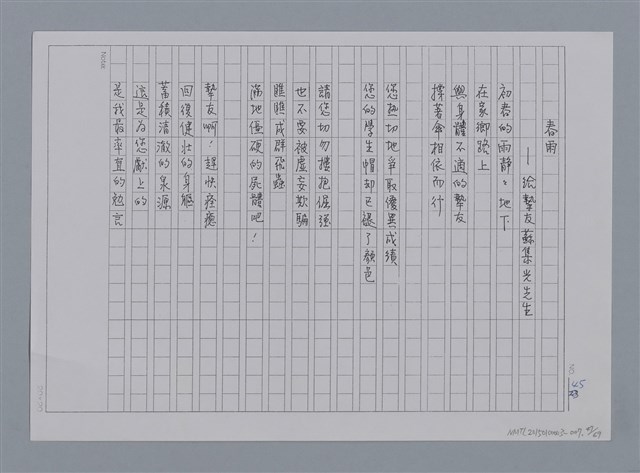 春雨
——給摯友蘇集光先生
初春的雨靜々地下
在家鄉路上
與身體不適的摯友
撐著傘相依而行
您熱切地爭取優異成績
您的學生帽却已褪了顏色
請您切勿摟抱倔强
也不要被虛妄欺騙
瞧瞧成群飛蟲
滿地僵硬的屍體吧！
摯友啊！趕快痊癒
回復健壯的身軀
蓄積清澈的泉源
這是為您獻上的
是我最率直的勉言
Note:
45